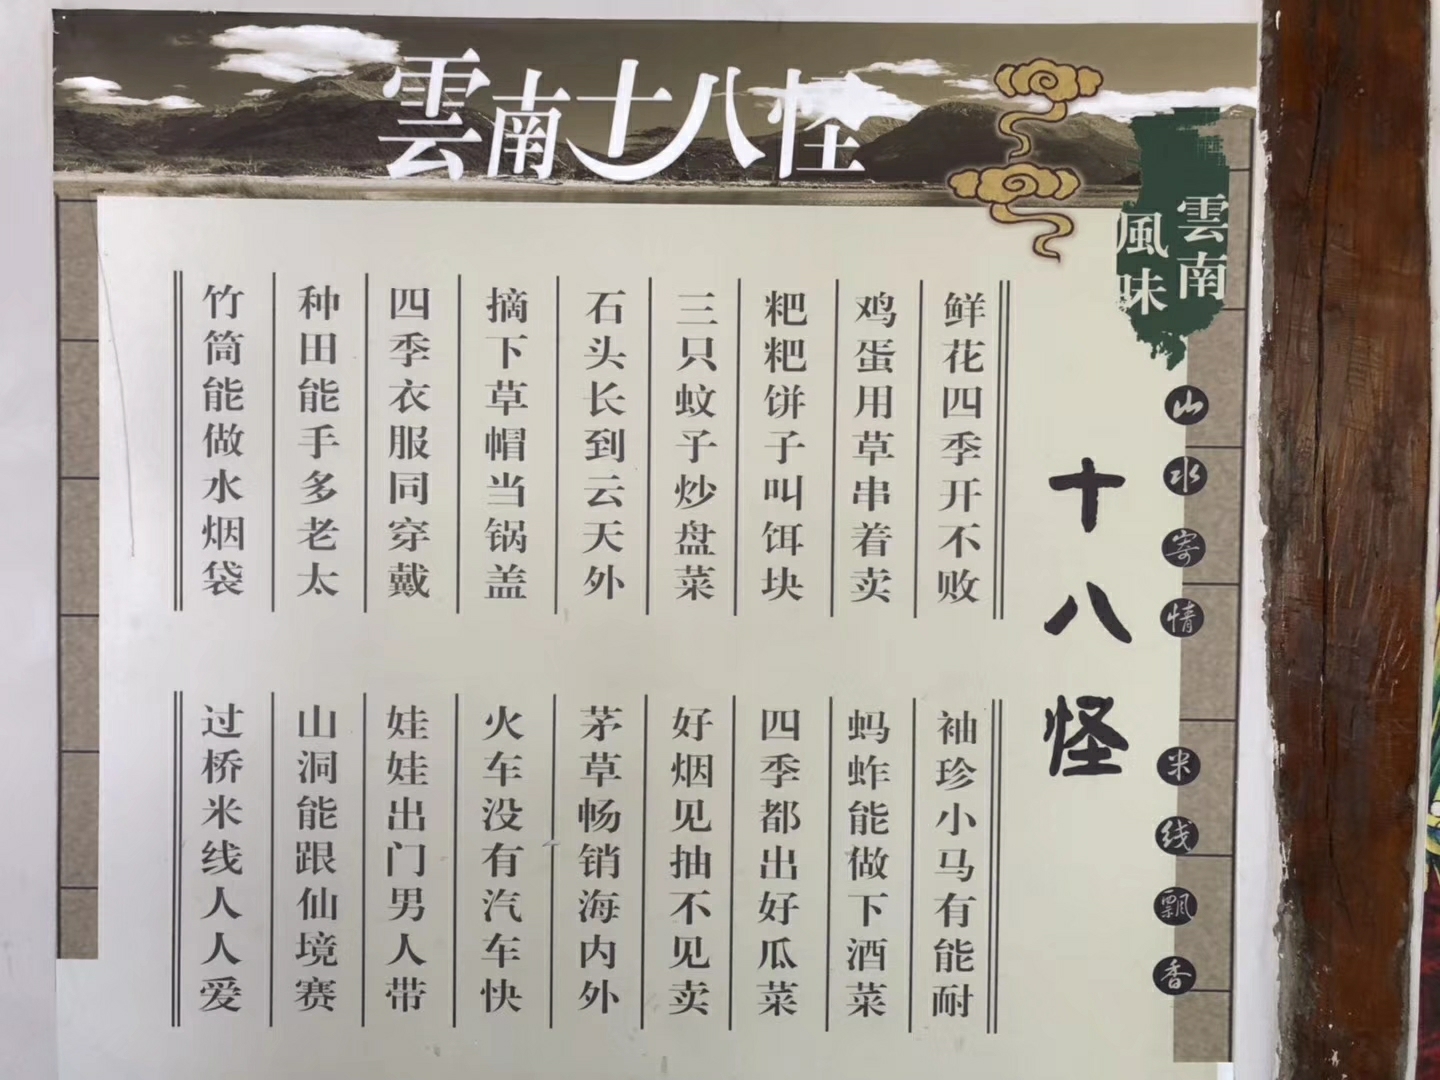 雲南十八怪
雲南
風味
山水寄情
米线飘香
十八怪
鲜花四季开不败
鸡蛋用草串着卖
粑粑饼子叫饵块
三只蚊子炒盘菜
石头长到云天外
摘下草帽当锅盖
四季衣服同穿戴
种田能手多老太
竹筒能做水烟袋
袖珍小马有能耐
蚂蚱能做下酒菜
四季都出好瓜菜
好烟见抽不见卖
茅草畅销海内外
火车没有汽车快
娃娃出门男人带
山洞能跟仙境赛
过桥米线人人爱